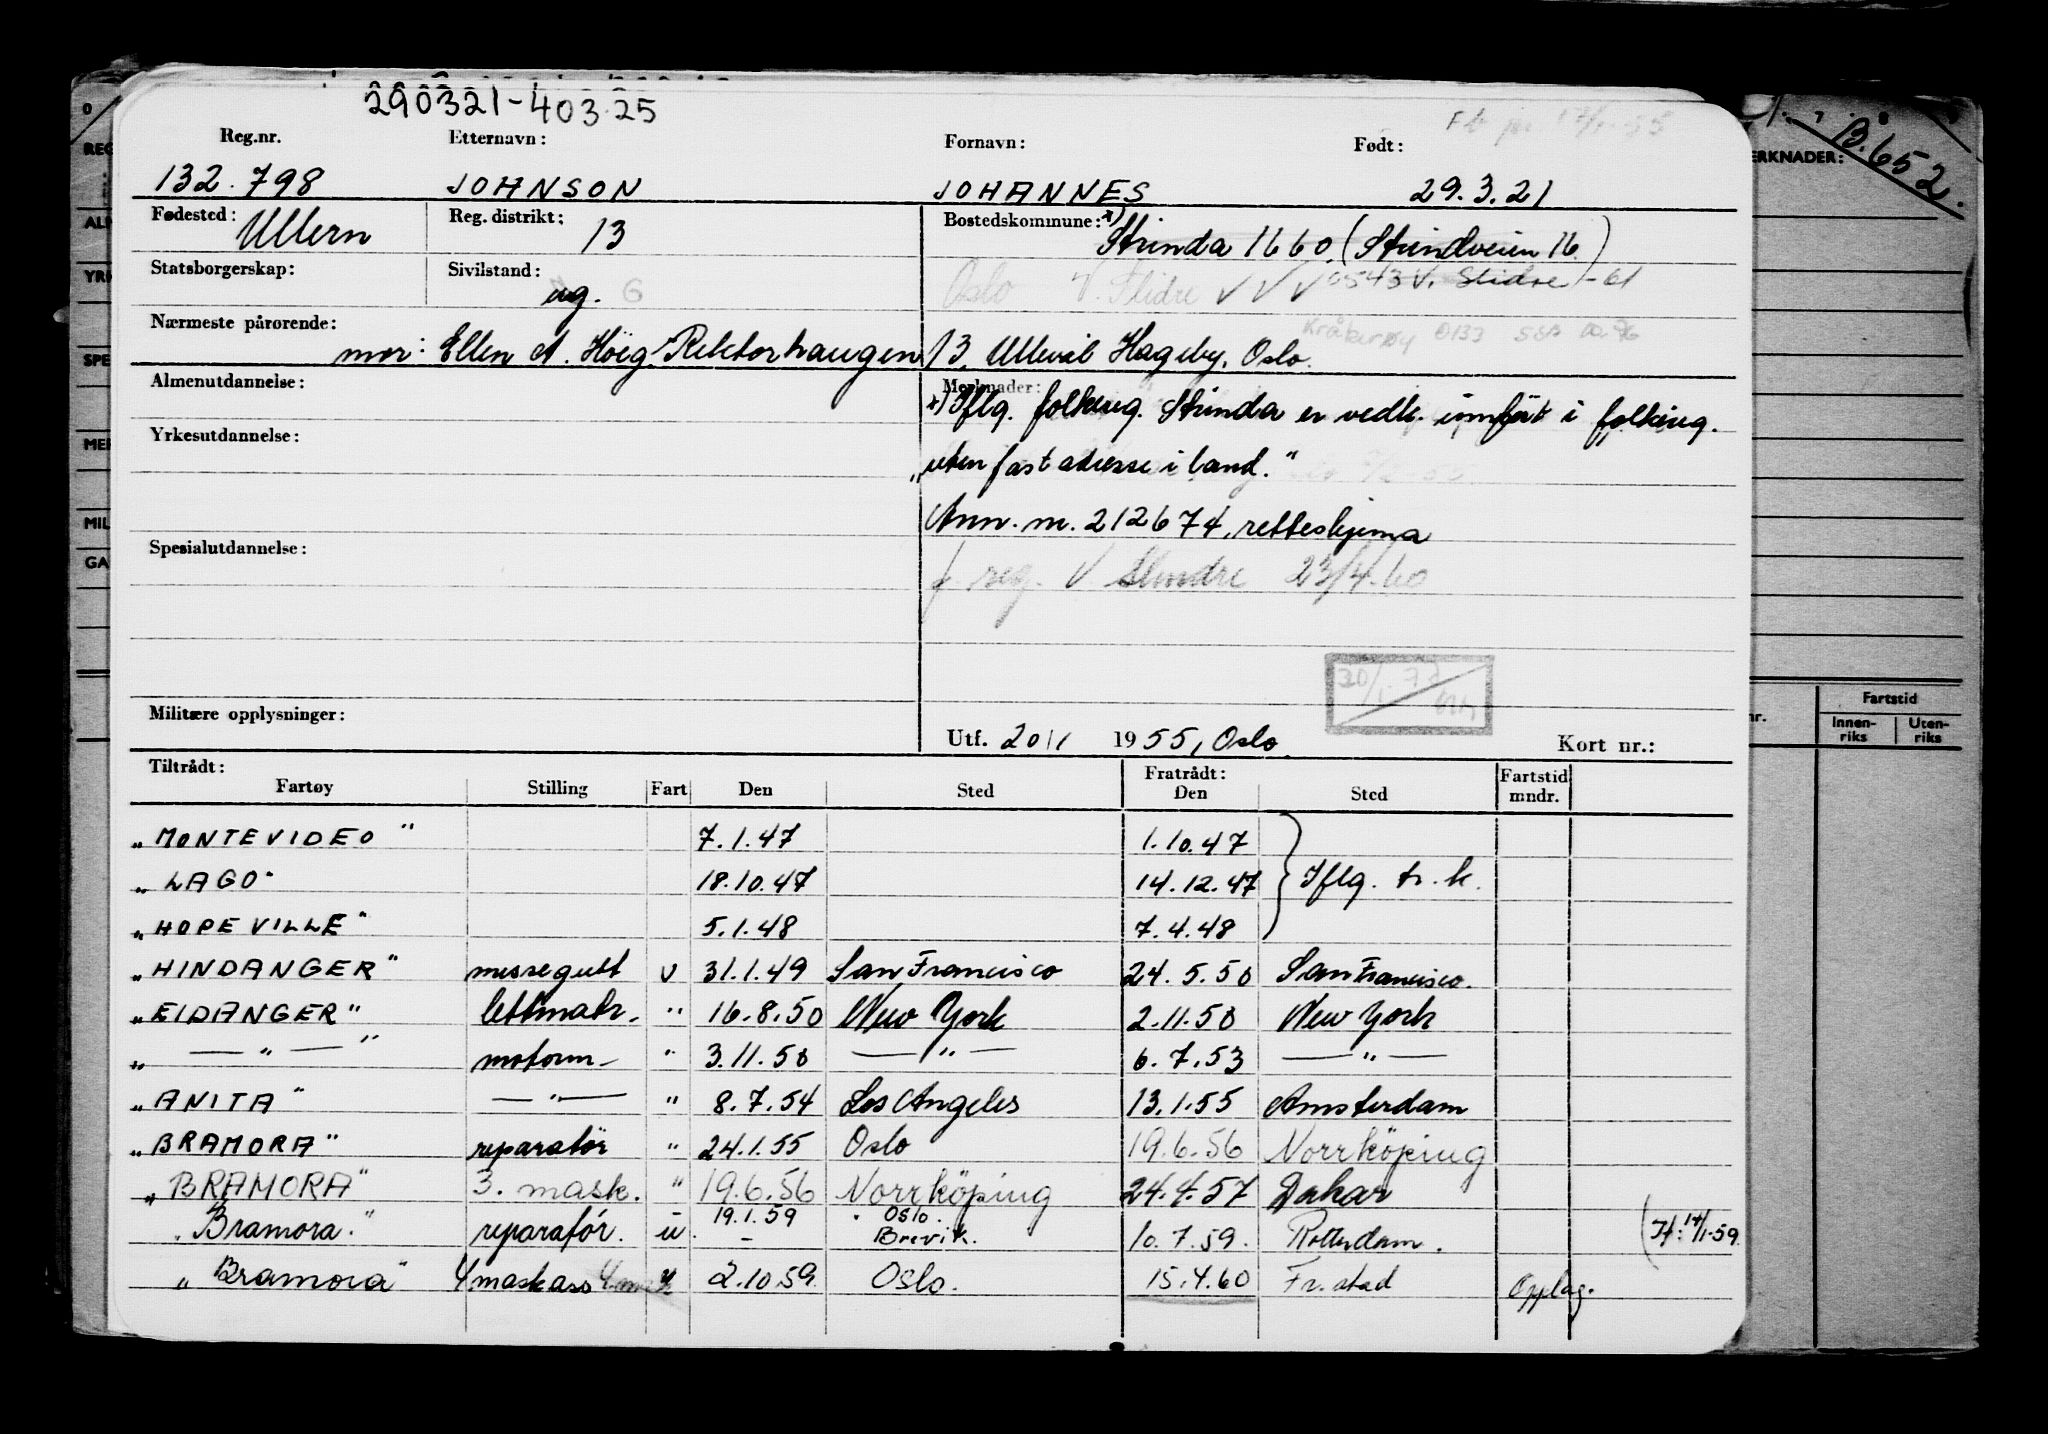 290321-403.25
Reg.nr. Etternavn: Fornavn: Født:
132.798 JOHNSON JOHANNES 29.3.21
Fødested: Ullern Reg. distrikt: 13 Bostedskommune: x) Strinda 1660. (Strindveien 16)
Statsborgerskap: Sivilstand: ug. G Oslo V. Slidre V V V 0543 V. Slidre -61
Nærmeste pårørende: Kråkerøy 0133
mor: Ellen A. Höeg. Rektorhaugen 13, Ullevål Hageby, Oslo.
Almenutdannelse: Merknader:
x) Iflg. folkereg. Strinda er vedk. innført i folkereg.
Yrkesutdannelse:
„uten fast adresse i land."
Ann. m. 212674, retteskjema
Spesialutdannelse:
f. reg. V. Slindre 23/4.60
Militære opplysninger:
Utf. 20/1 1955, Oslo. Kort nr.:
Tiltrådt: Fratrådt: Fartstid
Fartøy Stilling Fart Den Sted Den Sted mndr.
„MONTEVIDEO" 7.1.47 1.10.47
„LAGO" 18.10.47 14.12.47 } Iflg. tr. k.
„HOPEVILLE" 5.1.48 7.4.48
„HINDANGER" messegutt u 31.1.49 San Francisco 24.5.50 San Francisco.
„EIDANGER" lettmatr. " 16.8.50 New York 2.11.50 New York
„ — " — " motorm — " 3.11.50 — " — 6.7.53 — " —
„ANITA" — " — " 8.7.54 Los Angeles 13.1.55 Amsterdam
„BRAMORA" reparatör " 24.1.55 Oslo 19.6.56 Norrköping
„BRAMORA" 3. mask. " 19.6.56 Norrköping 24.4.57 Dakar
„Bramora." reparatór. u. 19.1.59 " Oslo. Brevik. 10.7.59. Rotterdam. (If: 14/1-59.
„Bramora" 4 mask ass 2.10 59. Oslo. 15.4.60 Fr.stad Opplag.
ERKNADER:
B.652.
Fartstid
Innen-
riks
Uten-
riks